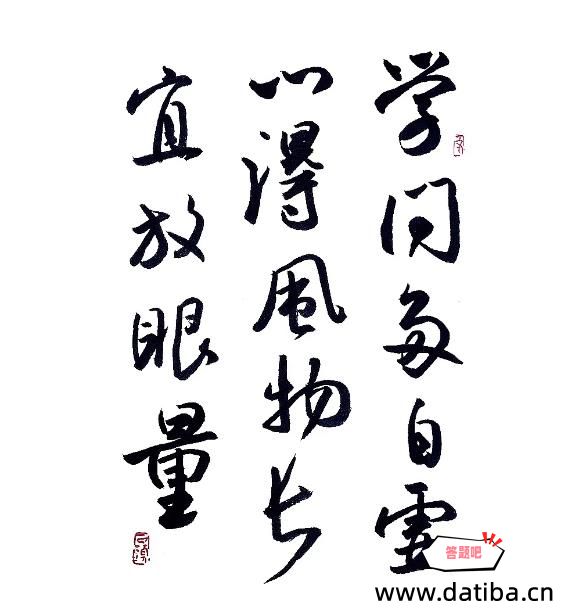 学问每自虚
心得風物长
宜放眼量
答题吧
www.datiba.cn